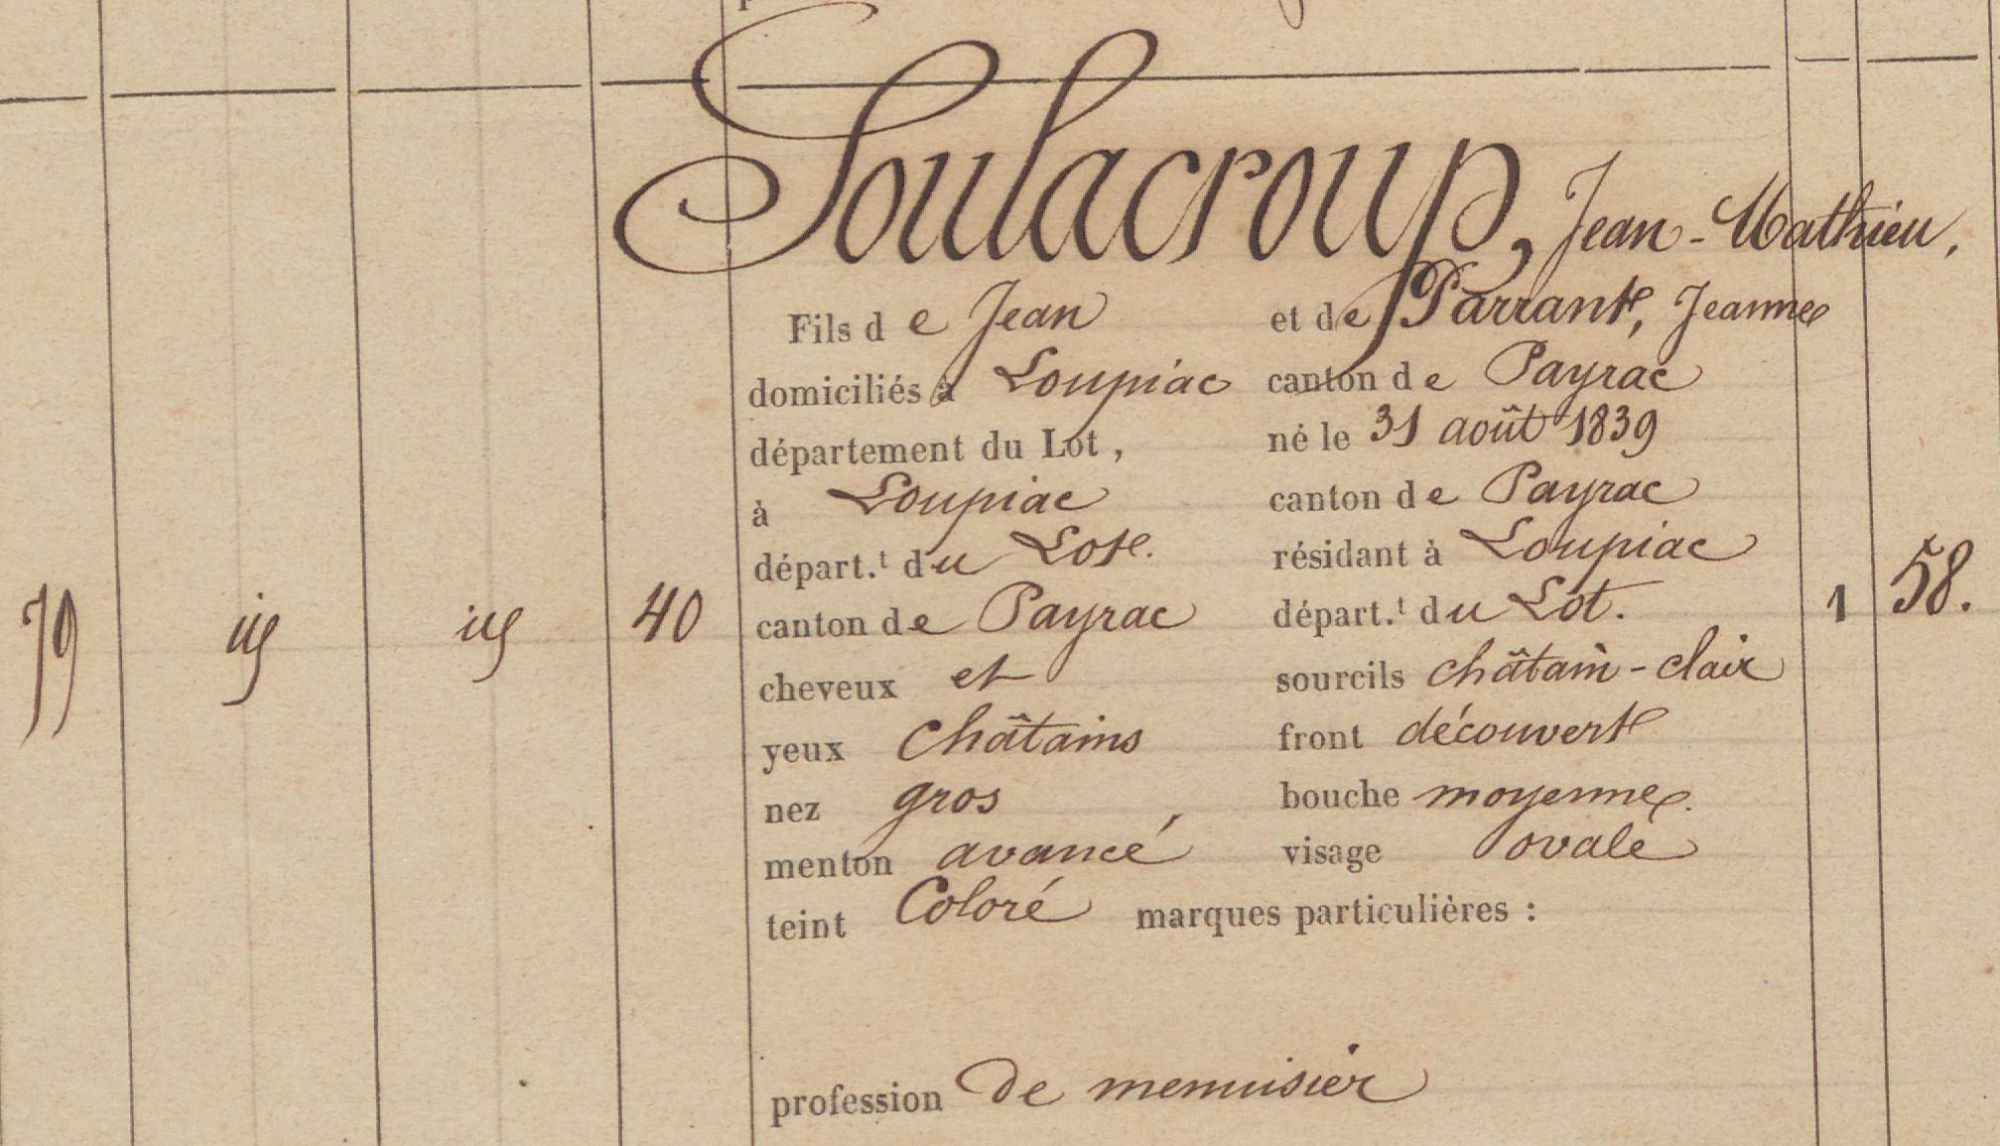 Soulacroup, Jean-Mathieu,
Fils de Jean et de Parrant, Jeanne
domiciliés à Loupiac canton de Payrac
département du Lot, né le 31 août 1839
à Loupiac canton de Payrac
départ.t du Lot. résidant à Loupiac
79 40 canton de Payrac départ.t du Lot. 1 58.
cheveux et sourcils châtain-clair
yeux châtains front découvert
nez gros bouche moyenne.
menton avancé visage ovale
teint Coloré marques particulières :
profession de menuisier